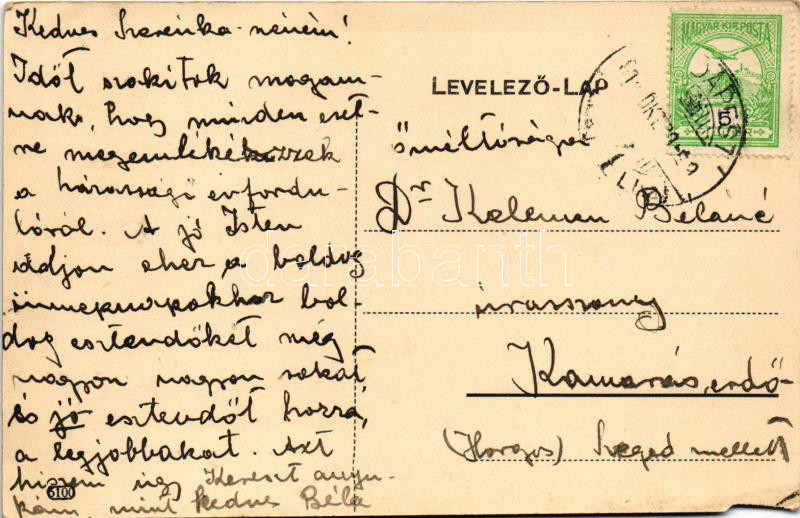 Kedves Szerénka-néném!
Időt szakítok magam-
nak, hogy minden eset-
re megemlékezzek
a házassági évfordu-
lóról. A jó Isten
adjon ehez a boldog
ünnepnapokhoz bol-
dog esztendőket még
nagyon nagyon sokat
és jó esztendőt hozzá,
a legjobbakat. Azt
hiszem úgy Kereszt anyu-
kám, mint kedves Béla
5100
LEVELEZŐ-LAP
MAGYAR KIR. POSTA
5
BUDAPEST
Őméltósága
Dr Kelemen Béláné
úrasszony
Kamarás erdő
(Horgos) Szeged mellett
darabanth